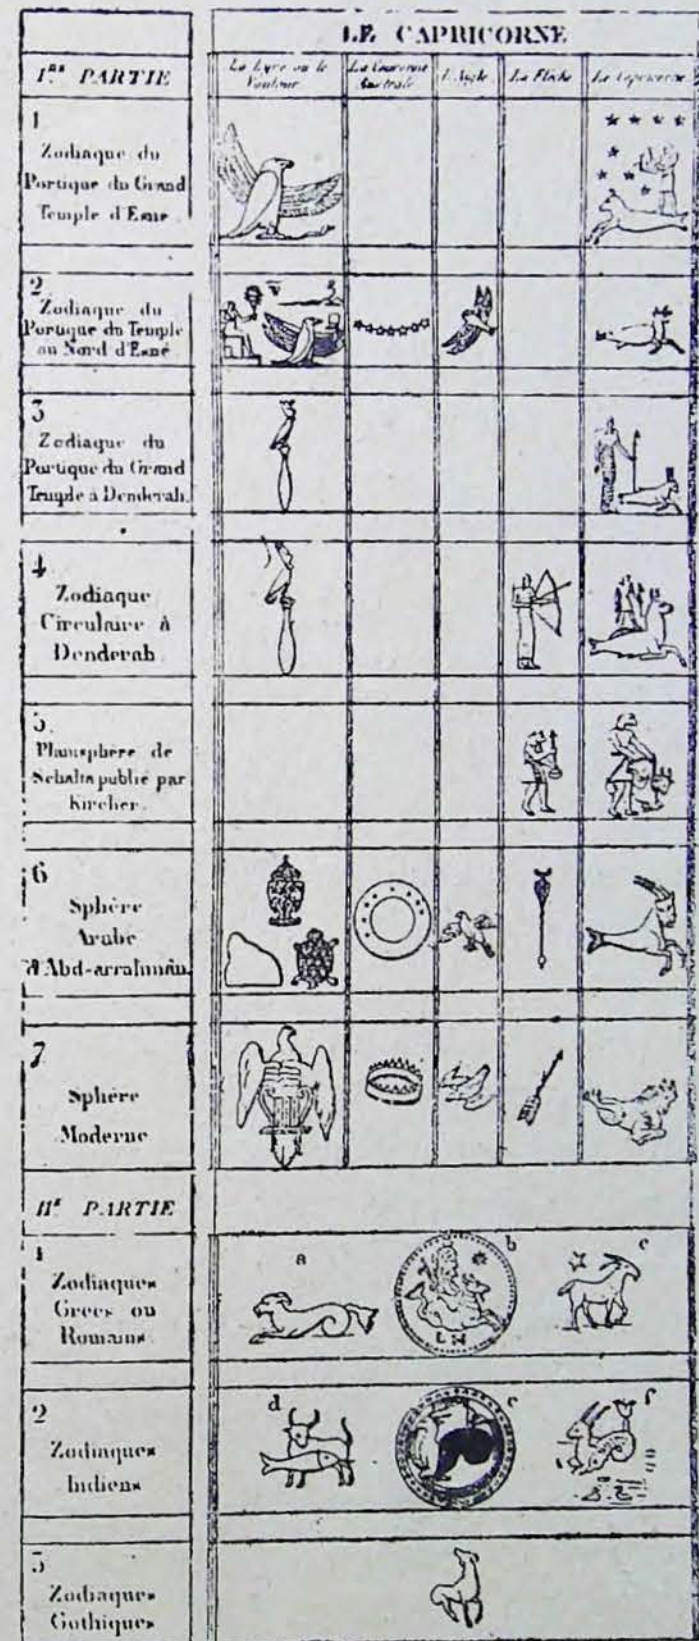 LE CAPRICORNE
I.re PARTIE
La Lyre ou le Vautour
La Couronne Australe
L'Aigle
La Flèche
Le Capricorne
1
Zodiaque du
Portique du Grand
Temple d'Esné
2
Zodiaque du
Portique du Temple
au Nord d'Esné
3
Zodiaque du
Portique du Grand
Temple à Denderah.
4
Zodiaque
Circulaire à
Denderah
5.
Planisphère de
publié par
Kircher.
6
Sphère
Arabe
d'Abd-arrahmân
7
Sphère
Moderne
II.e PARTIE
1
Zodiaques
Grecs ou
Romains
a
b
c
2
Zodiaques
Indiens
d
e
f
3
Zodiaques
Gothiques